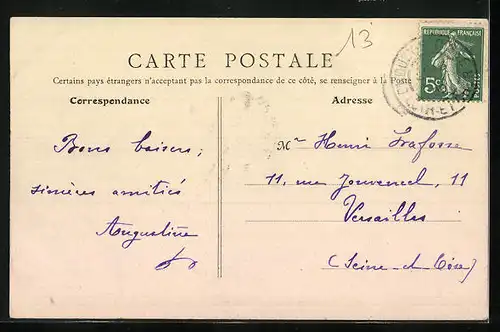 13
CARTE POSTALE
Certains pays étrangers n'acceptant pas la correspondance de ce côté, se renseigner à la Poste
REPUBLIQUE FRANÇAISE
5c
POSTES
Correspondance
Adresse
Bons baisers,
sincères amitiés
Augustine
Mr Henri Lafosse
11, rue Jouvenel, 11
Versailles
(Seine-et-Oise)